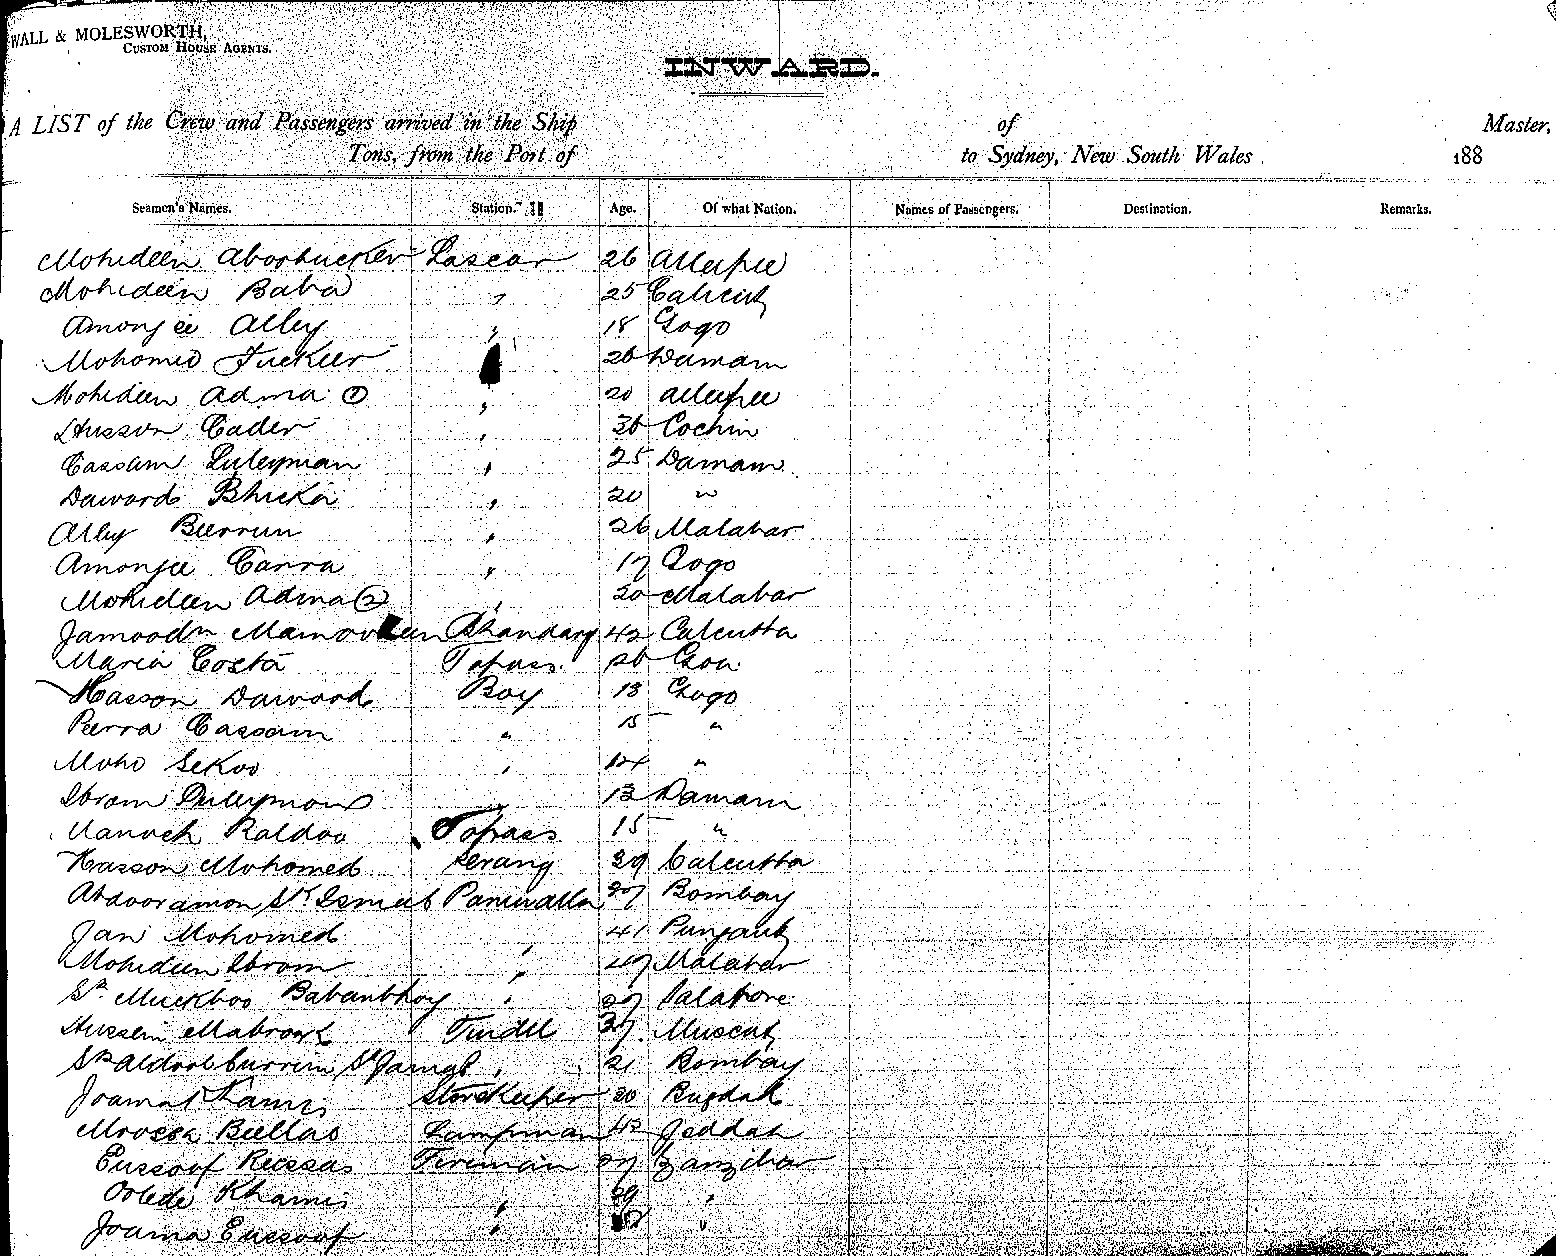 WALL & MOLESWORTH,
CUSTOM HOUSE AGENTS.
INWARD.
A LIST of the Crew and Passengers arrived in the Ship of Master,
Tons, from the Port of to Sydney, New South Wales 188
Seamen's Names. Station. Age. Of what Nation. Names of Passengers. Destination. Remarks.
Mohideen Aboobucker Lascar 26 Alleepee
Mohideen Baba " 25 Calicut
Amonjee Alley " 18 Gogo
Mohomed Damam
Mohideen Adma ① " 20 Alleepee
Husson Cader " Cochin
Cassam Suleyman " 25 Damam
Dawood Bhicka " 20 "
Alley " 26 Malabar
Amonjee Canra " 17 Gogo
Mohideen Adma ② " 20 Malabar
Bhandary 42 Calcutta
Maria Costa Topass Goa
Hasson Dawood Boy 13 Gogo
Peerra Cassam " 15 "
Moho Sekoo " 14 "
Ibram Suleyman " 13 Damam
Topass 15 "
Hasson Mohomed Serang 39 Calcutta
Abdooramon Sk Ismeel Paniwalla Bombay
Jan Mohomed " 41 Punjaub
Mohideen Ibram " 47 Malabar
Sk. Muckboo Babanbhoy "
Hussein Mabrook Tindel 37 Muscat
Sk Abdool Curreem Sk Jamal " 21 Bombay
Joamal Kamis Storekeeper Bugdad
Moossa Lampman 42 Jeddah
Eussoof Fireman Zanzibar
Khamis " "
Jouma Eussoof " "